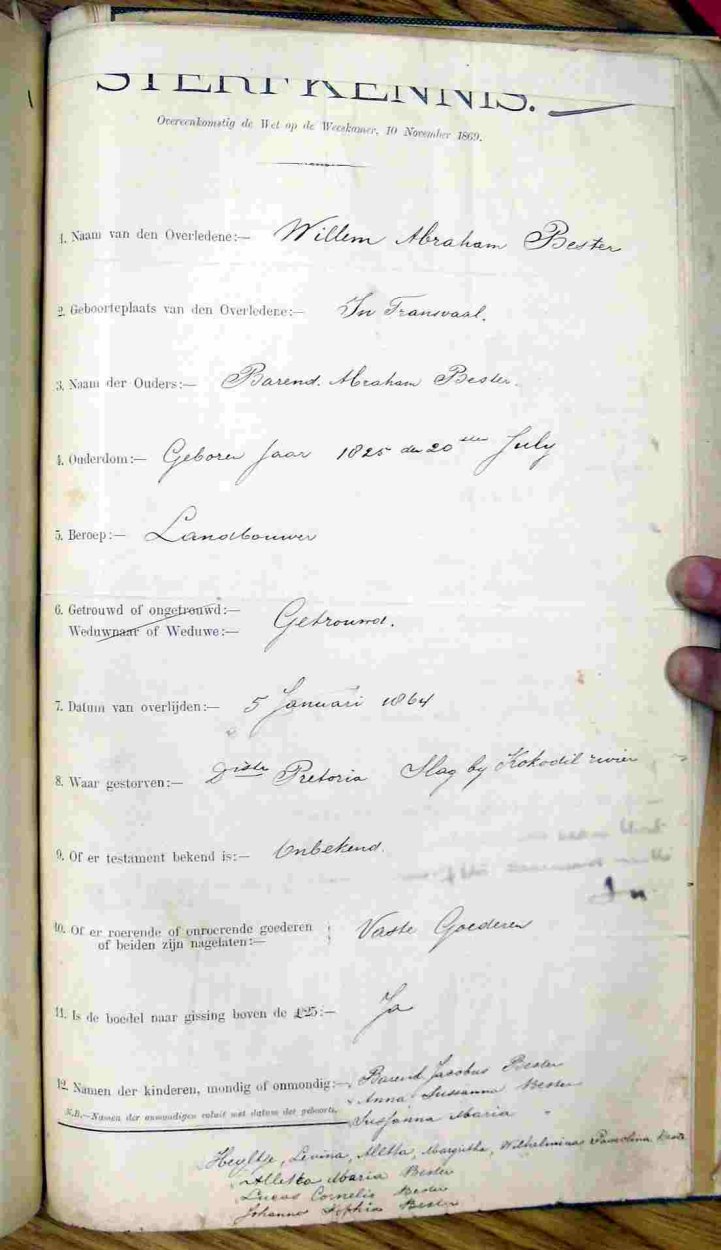 STERFKENNIS.
Overeenkomstig de Wet op de Weeskamer, 10 November 1869.
1. Naam van den Overledene:— Willem Abraham Bester
2. Geboorteplaats van den Overledene:— In Transvaal.
3. Naam der Ouders:— Barend Abraham Bester.
4. Ouderdom:— Geboren Jaar 1825 den 20sten July
5. Beroep:— Landbouwer
6. Getrouwd of ongetrouwd:—
Weduwnaar of Weduwe:— Getrouwd.
7. Datum van overlijden:— 5 Januari 1864
8. Waar gestorven:— Distr Pretoria Slag by Kokodil rivier
9. Of er testament bekend is:— Onbekend.
10. Of er roerende of onroerende goederen
of beiden zijn nagelaten:— Vaste Goederen
11. Is de boedel naar gissing boven de £25:— Ja
12. Namen der kinderen, mondig of onmondig:— Barend Jacobus Bester
Anna Sussanna Bester
N.B.—Namen der onmondigen voluit met datum der geboorte. Sussanna Maria "
Heyltje, Levina, Aletta, Margritha, Wilhelmina
Alletta Maria Bester
Lucas Cornelis Bester
Johanna Sophia Bester